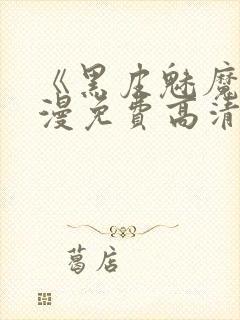 《黑皮魅魔
漫免费高清
葛店